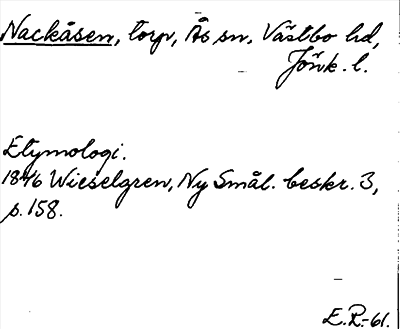 Nackåsen, torp, Ås sn, Västbo hd,
Jönk. l.
Etymologi.
1846 Wieselgren, Ny Smål. beskr. 3,
s. 158.
E.R.-61.